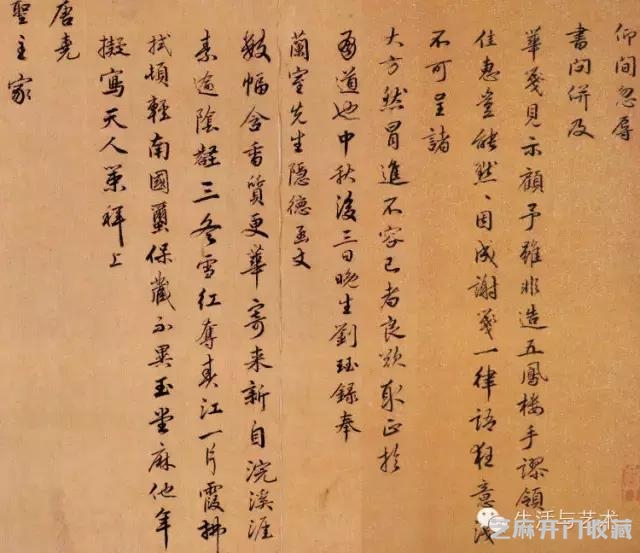 仰間忽辱
書問併及
華箋見示顧予雖非造五鳳樓手謬領
佳惠豈能默〻因成謝箋一律語狂意淺
不可呈諸
大方然冒進不容已者良欲取正於
有道也中秋後三日晚生劉珏錄奉
蘭室先生隱德函丈
數幅含香質更華寄来新自浣溪涯
素逾陰壑三冬雪紅奪春江一片霞拂
拭頓輕南國蠒保藏不異玉堂麻他年
擬寫天人策祥上
唐堯
聖主家
生活与艺术
芝麻开门收藏